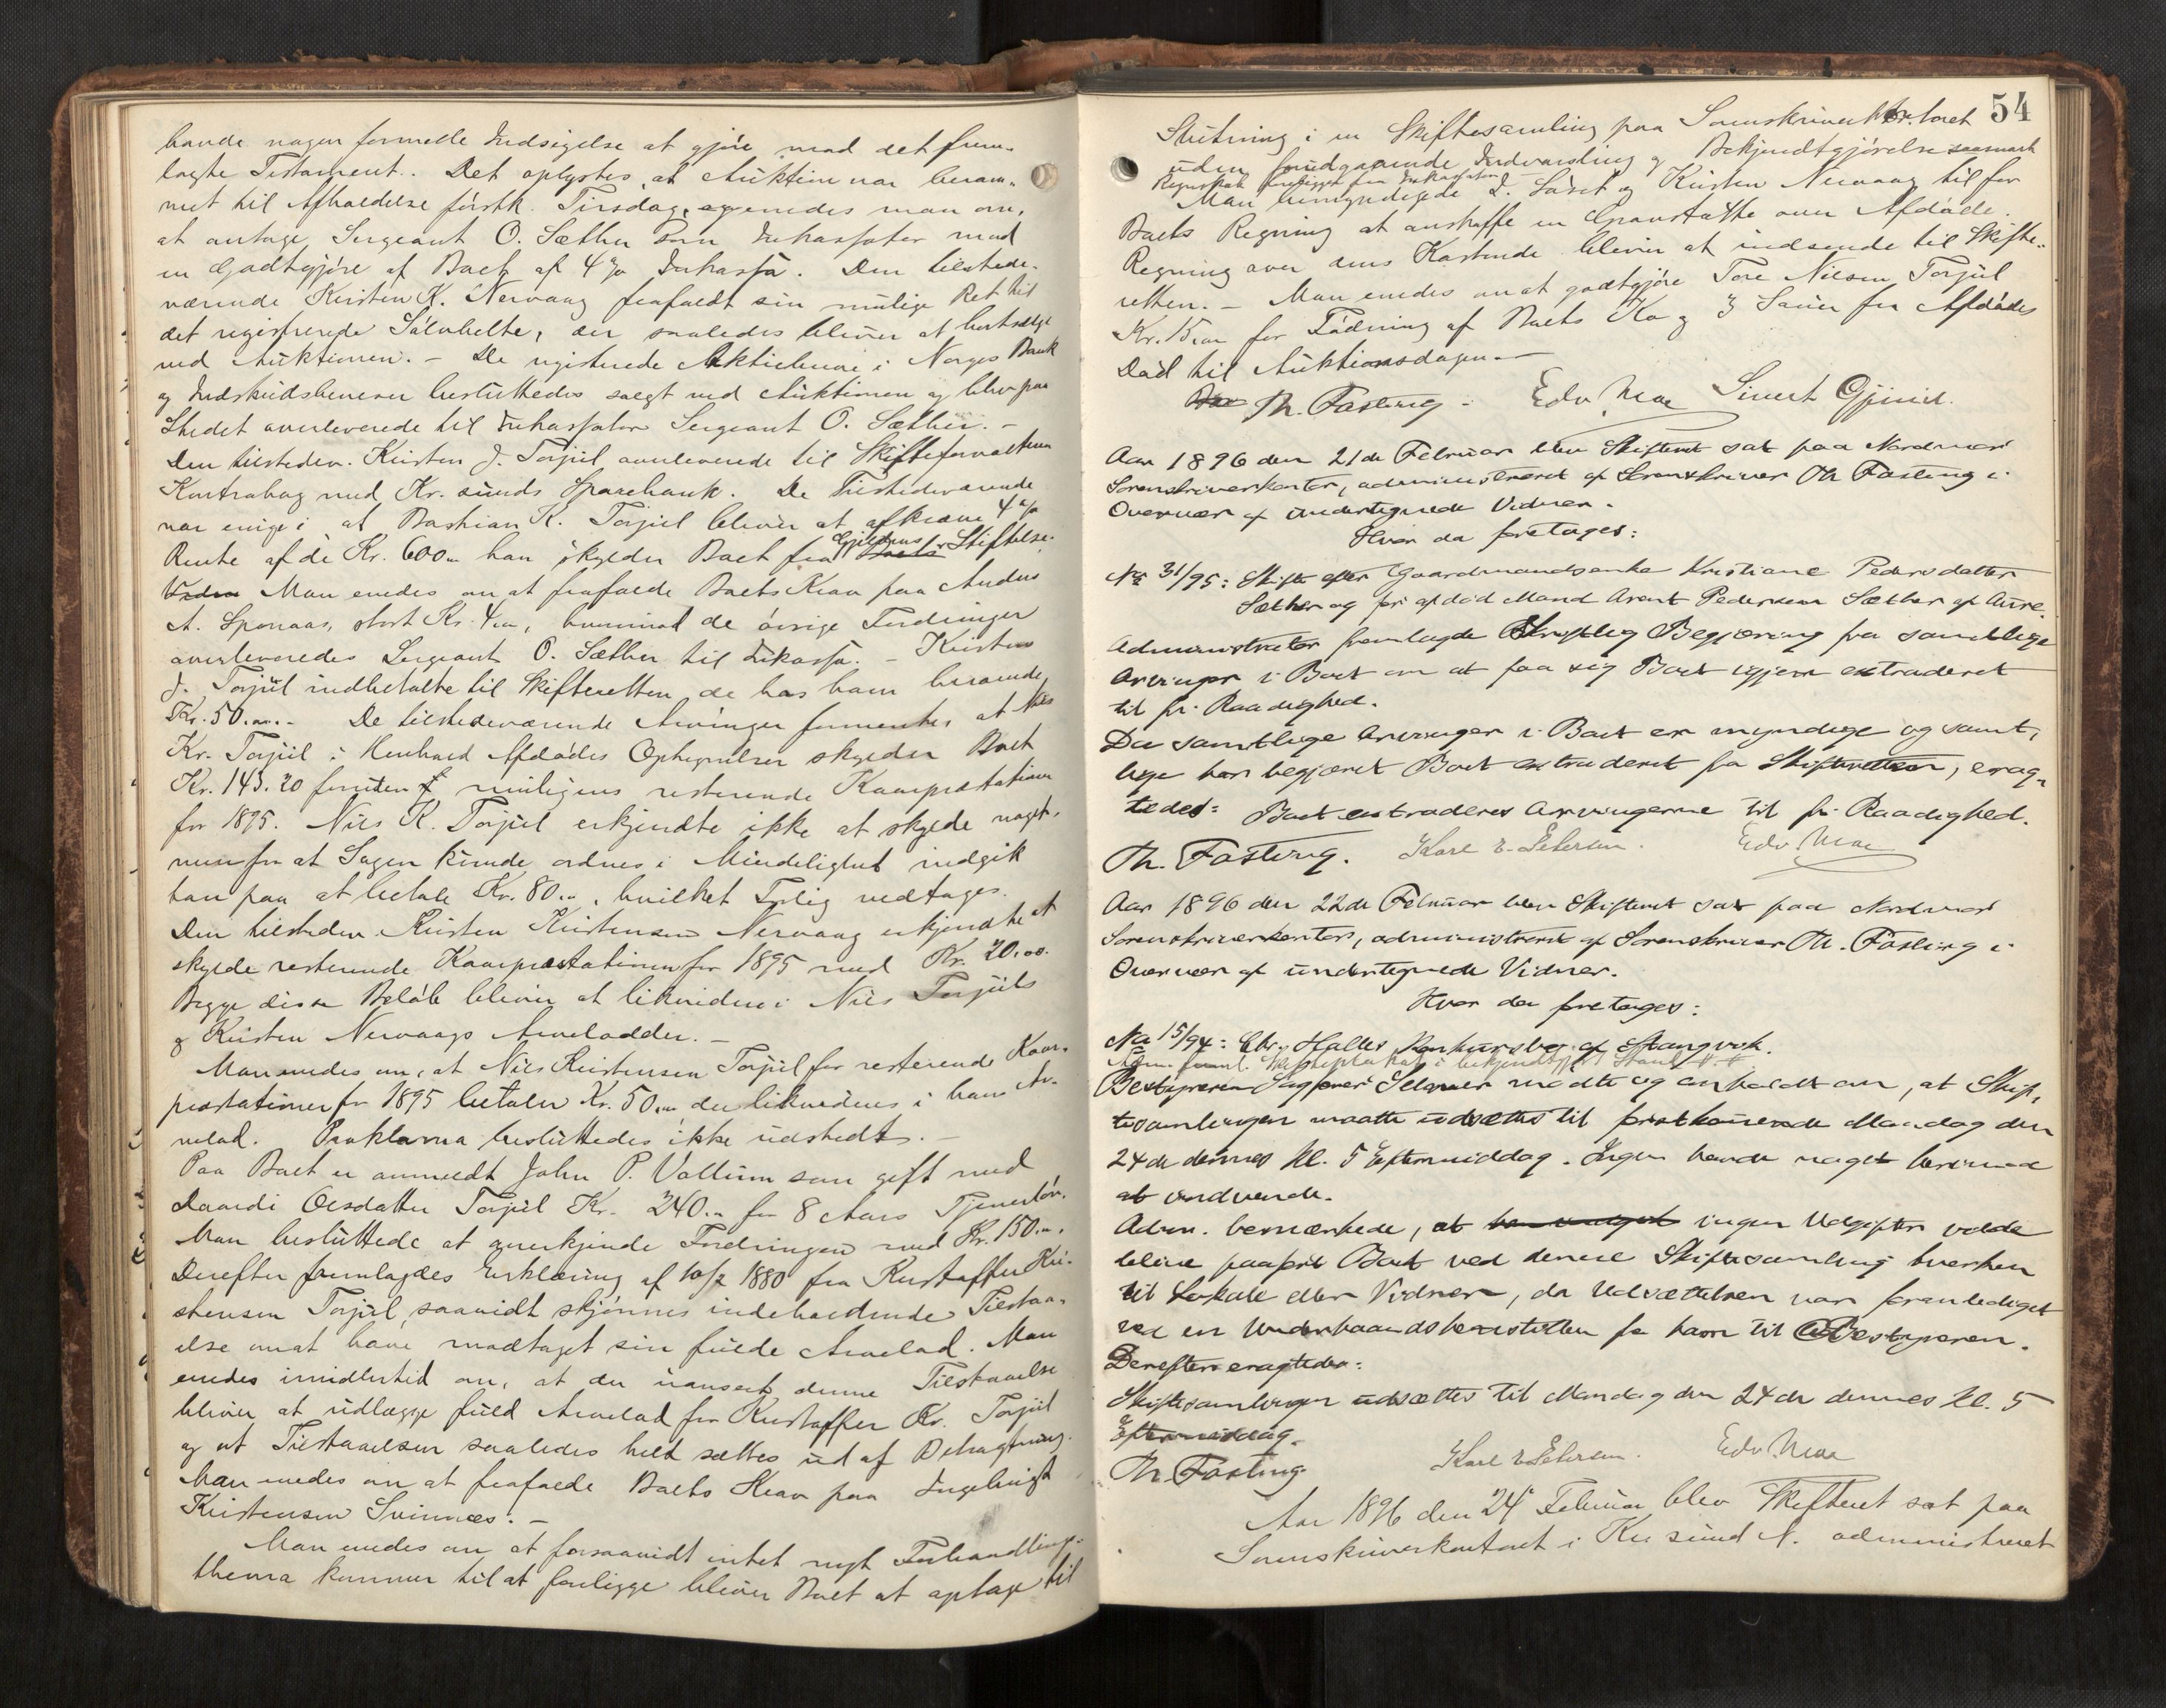 havde nogen formelle Indsigelse at gjøre mod det frem-
lagte Testament. Det oplystes, at Auktion var beram-
met til Afholdelse førstk. Tirsdag, og enedes man om,
at antage Sergeant O. Sæther som Inkassator mod
en Godtgjøre af Boet af 4 % Inkasso. Den tilstede-
værende Kristen K. Nervaag frafaldt sin mulige Ret til
det registrerede Sølvbelte, der saaledes bliver at bortsælge
ved Auktionen. - De registrerede Aktiebreve i Norges Bank
og Indskudsbeviser besluttedes solgt ved Auktionen og blev paa
Stedet overleverede til Inkassator Sergeant O. Sæther. -
Den tilstedev. Kristen J. Torjul overleverede til Skifteforvalteren
Kontrabog med Kr.sunds Sparebank. De Tilstedeværende
var enige i at Bastian K. Torjul bliver at afkræve 4 %
Rente af de Kr. 600.00 han skylder Boet fra Gjeldens Boets Stiftelse.
Man enedes om at frafalde Boets Krav paa Anders
A. Sponaas, stort Kr. 4.00, hvorimod de øvrige Fordringer
overleveredes Sergeant O. Sæther til Inkasso. - Kristen
J. Torjul indbetalte til Skifteretten de hos ham beroende
Kr. 50.00. - De tilstedeværende Arvinger formentes at Nils
Kr. Torjul i Henhold Afdødes Optegnelser skylder Boet
Kr. 143.20 foruden muligens resterende Kaarpræstationer
for 1895. Nils K. Torjul erkjendte ikke at skylde noget,
men for at Sagen kunde ordnes i Mindelighed indgik
han paa at betale Kr. 80.00, hvilket Forlig vedtages.
Den tilstedev. Kristen Kristensen Nervaag erkjendte at
skylde resterende Kaarpræstationer for 1895 med Kr. 20.00.
Begge disse Beløb bliver at likvidere i Nils Torjuls
og Kristen Nervaags Arvelodder. -
Man enedes om, at Nils Kristensen Torjul for resterende Kaar-
præstationer for 1895 betaler Kr. 50.00 der likvideres i hans Ar-
velod. Proklama besluttedes ikke udstedt. -
Paa Boet er anmeldt John P. Vollum som gift med
Olsdatter Torjul Kr. 240.00 for 8 Aars Tjenerløn.
Man besluttede at anerkjende Fordringen med Kr. 150.00.
Derefter fremlagdes Erklæring af 10/2 1880 fra Kristoffer Kri-
stensen Torjul, saavidt skjønnes indeholdende Tilstaa-
else om at have modtaget sin fulde Arvelod. Man
enedes imidlertid om, at der uanseet denne Tilstaaelse
bliver at udlægge fuld Arvelod for Kristoffer Kr. Torjul
og at Tilstaaelsen saaledes helt sættes ud af Betragtning.
Man enedes om at frafalde Boets Krav paa Ingebrigt
Kristensen Svinnæs. -
Man enedes om at forsaavidt intet nyt Forhandlings-
thema kommer til at foreligge bliver Boet at optage til
54
Slutning i en Skiftesamling paa Sorenskriverkontoret
uden forudgaaende Indvarsling og Bekjendtgjørelse saasnart
Regnskab foreligger fra Inkassator.
Man bemyndigede Kristen Nervaag til for
Boets Regning at anskaffe en Gravstøtte over Afdøde.
Regning over dens Kostende bliver at indsende til Skifte-
retten. - Man enedes om at godtgjøre Tore Nilsen Torjul
Kr. 15.00 for Fødning af Boets Ko og 3 Sauer fra Afdødes
Død til Auktionsdagen. -
Th. Fasting. Edv Moe Sivert Gjimil.
Aar 1896 den 21de Februar blev Skifteret sat paa Nordmør
Sorenskriverkontor, administreret af Sorenskriver Th Fasting i
Overvær af undertegnede Vidner.
Hvor da foretages:
No 31/95: Skifte efter Gaardmandsenke Kristiane Pedersdatter
Sæther og før afdød Mand Arent Pedersen Sæther af Aure.
Administrator fremlagde Skriftlig Begjæring fra samtlige
Arvinger i Boet om at faa sig Boet igjen extraderet
til fri Raadighed.
Da samtlige Arvinger i Boet er myndige og samt-
lige har begjæret Boet extraderet fra Skifteretten, erag-
tedes: Boet extraderes Arvingerne til fri Raadighed.
Th. Fasting. Karl E. Petersen. Edv Moe
Aar 1896 den 22de Februar blev Skifteret sat paa Nordmør
Sorenskriverkontor, administreret af Sorenskriver Th. Fasting i
Overvær af undertegnede Vidner.
Hvor da foretages:
No 15/94: Chr. Halles Konkursbo af Stangvik.
Adm. freml. i bekjendtgjort Stand
Bestyreren Sagfører Selmer mødte og anholdt om, at Skif-
tesamlingen maatte udsættes til førstkommende Mandag den
24de dennes Kl. 5 Eftermiddag. Ingen havde noget herimod
at indvende.
Adm. bemærkede, at ingen Udgifter vilde
blive paaført Boet ved denne Skiftesamling hverken
til Lokale eller Vidner, da Udsættelsen var foranlediget
ved en Underhaandshenstillen fra ham til Bestyreren.
Derefter eragtedes:
Skiftesamlingen udsættes til Mandag den 24de dennes Kl. 5
Eftermiddag.
Th. Fasting Karl E Petersen. Edv Moe
Aar 1896 den 24 Februar blev Skifteret sat paa
Sorenskriverkontoret i Kr.sund N. administreret